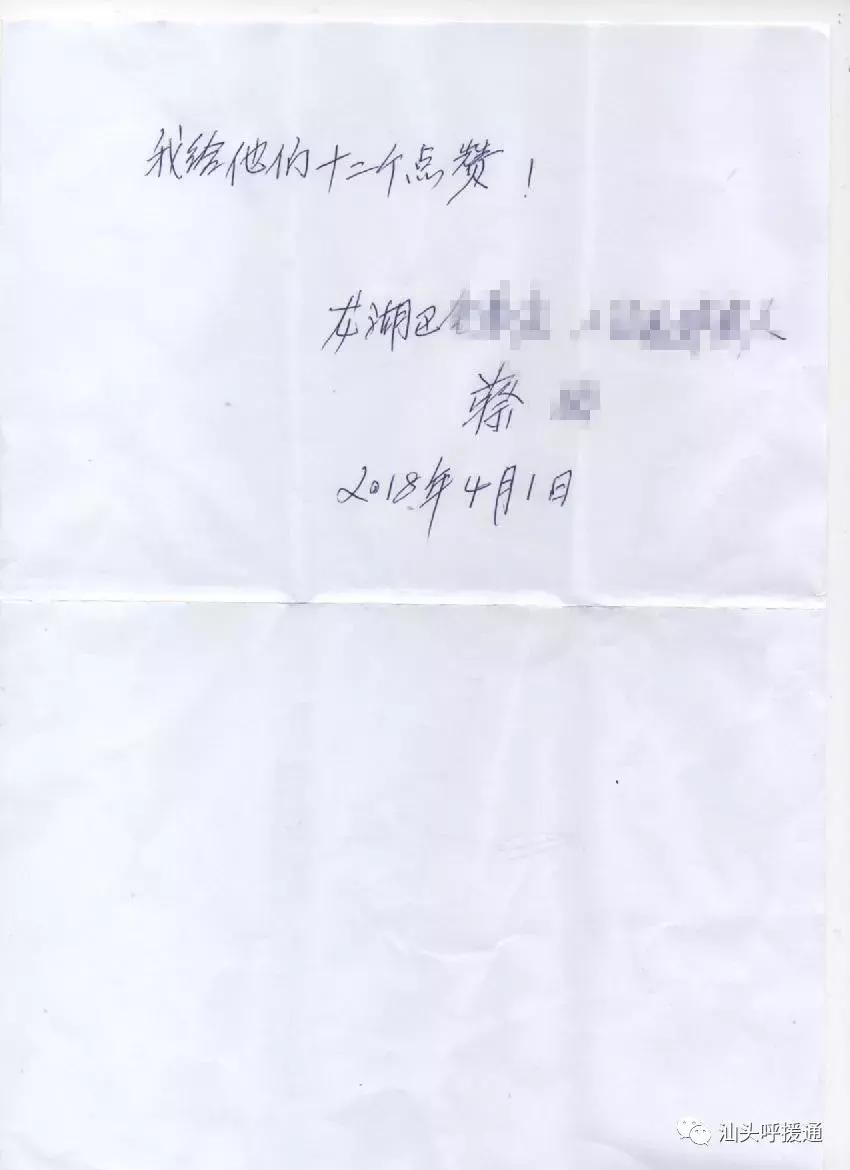 我给他们十二个点赞！
龙湖区
蔡
2018年4月1日
汕头呼援通